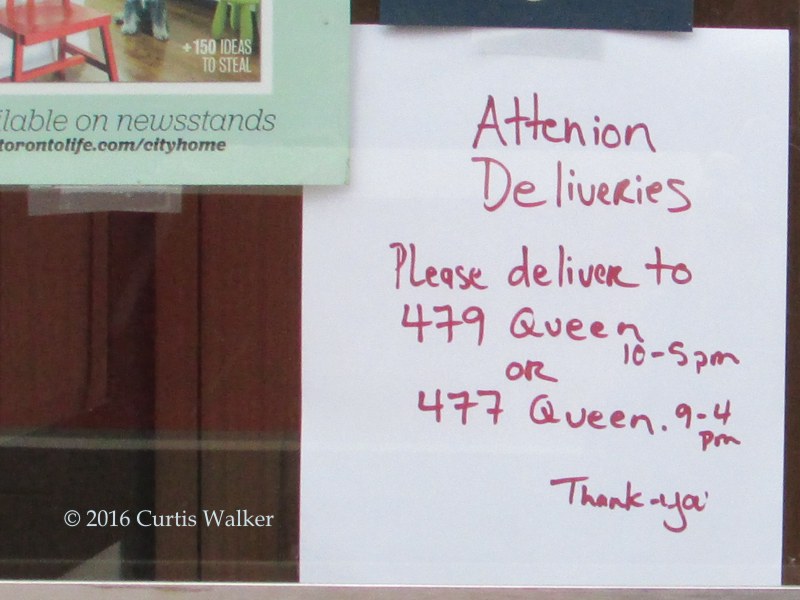 +150 IDEAS
TO STEAL
ilable on newsstands
torontolife.com/cityhome
Attenion
Deliveries
Please deliver to
479 Queen
10-5pm
OR
477 Queen. 9-4
pm
Thank-you
© 2016 Curtis Walker